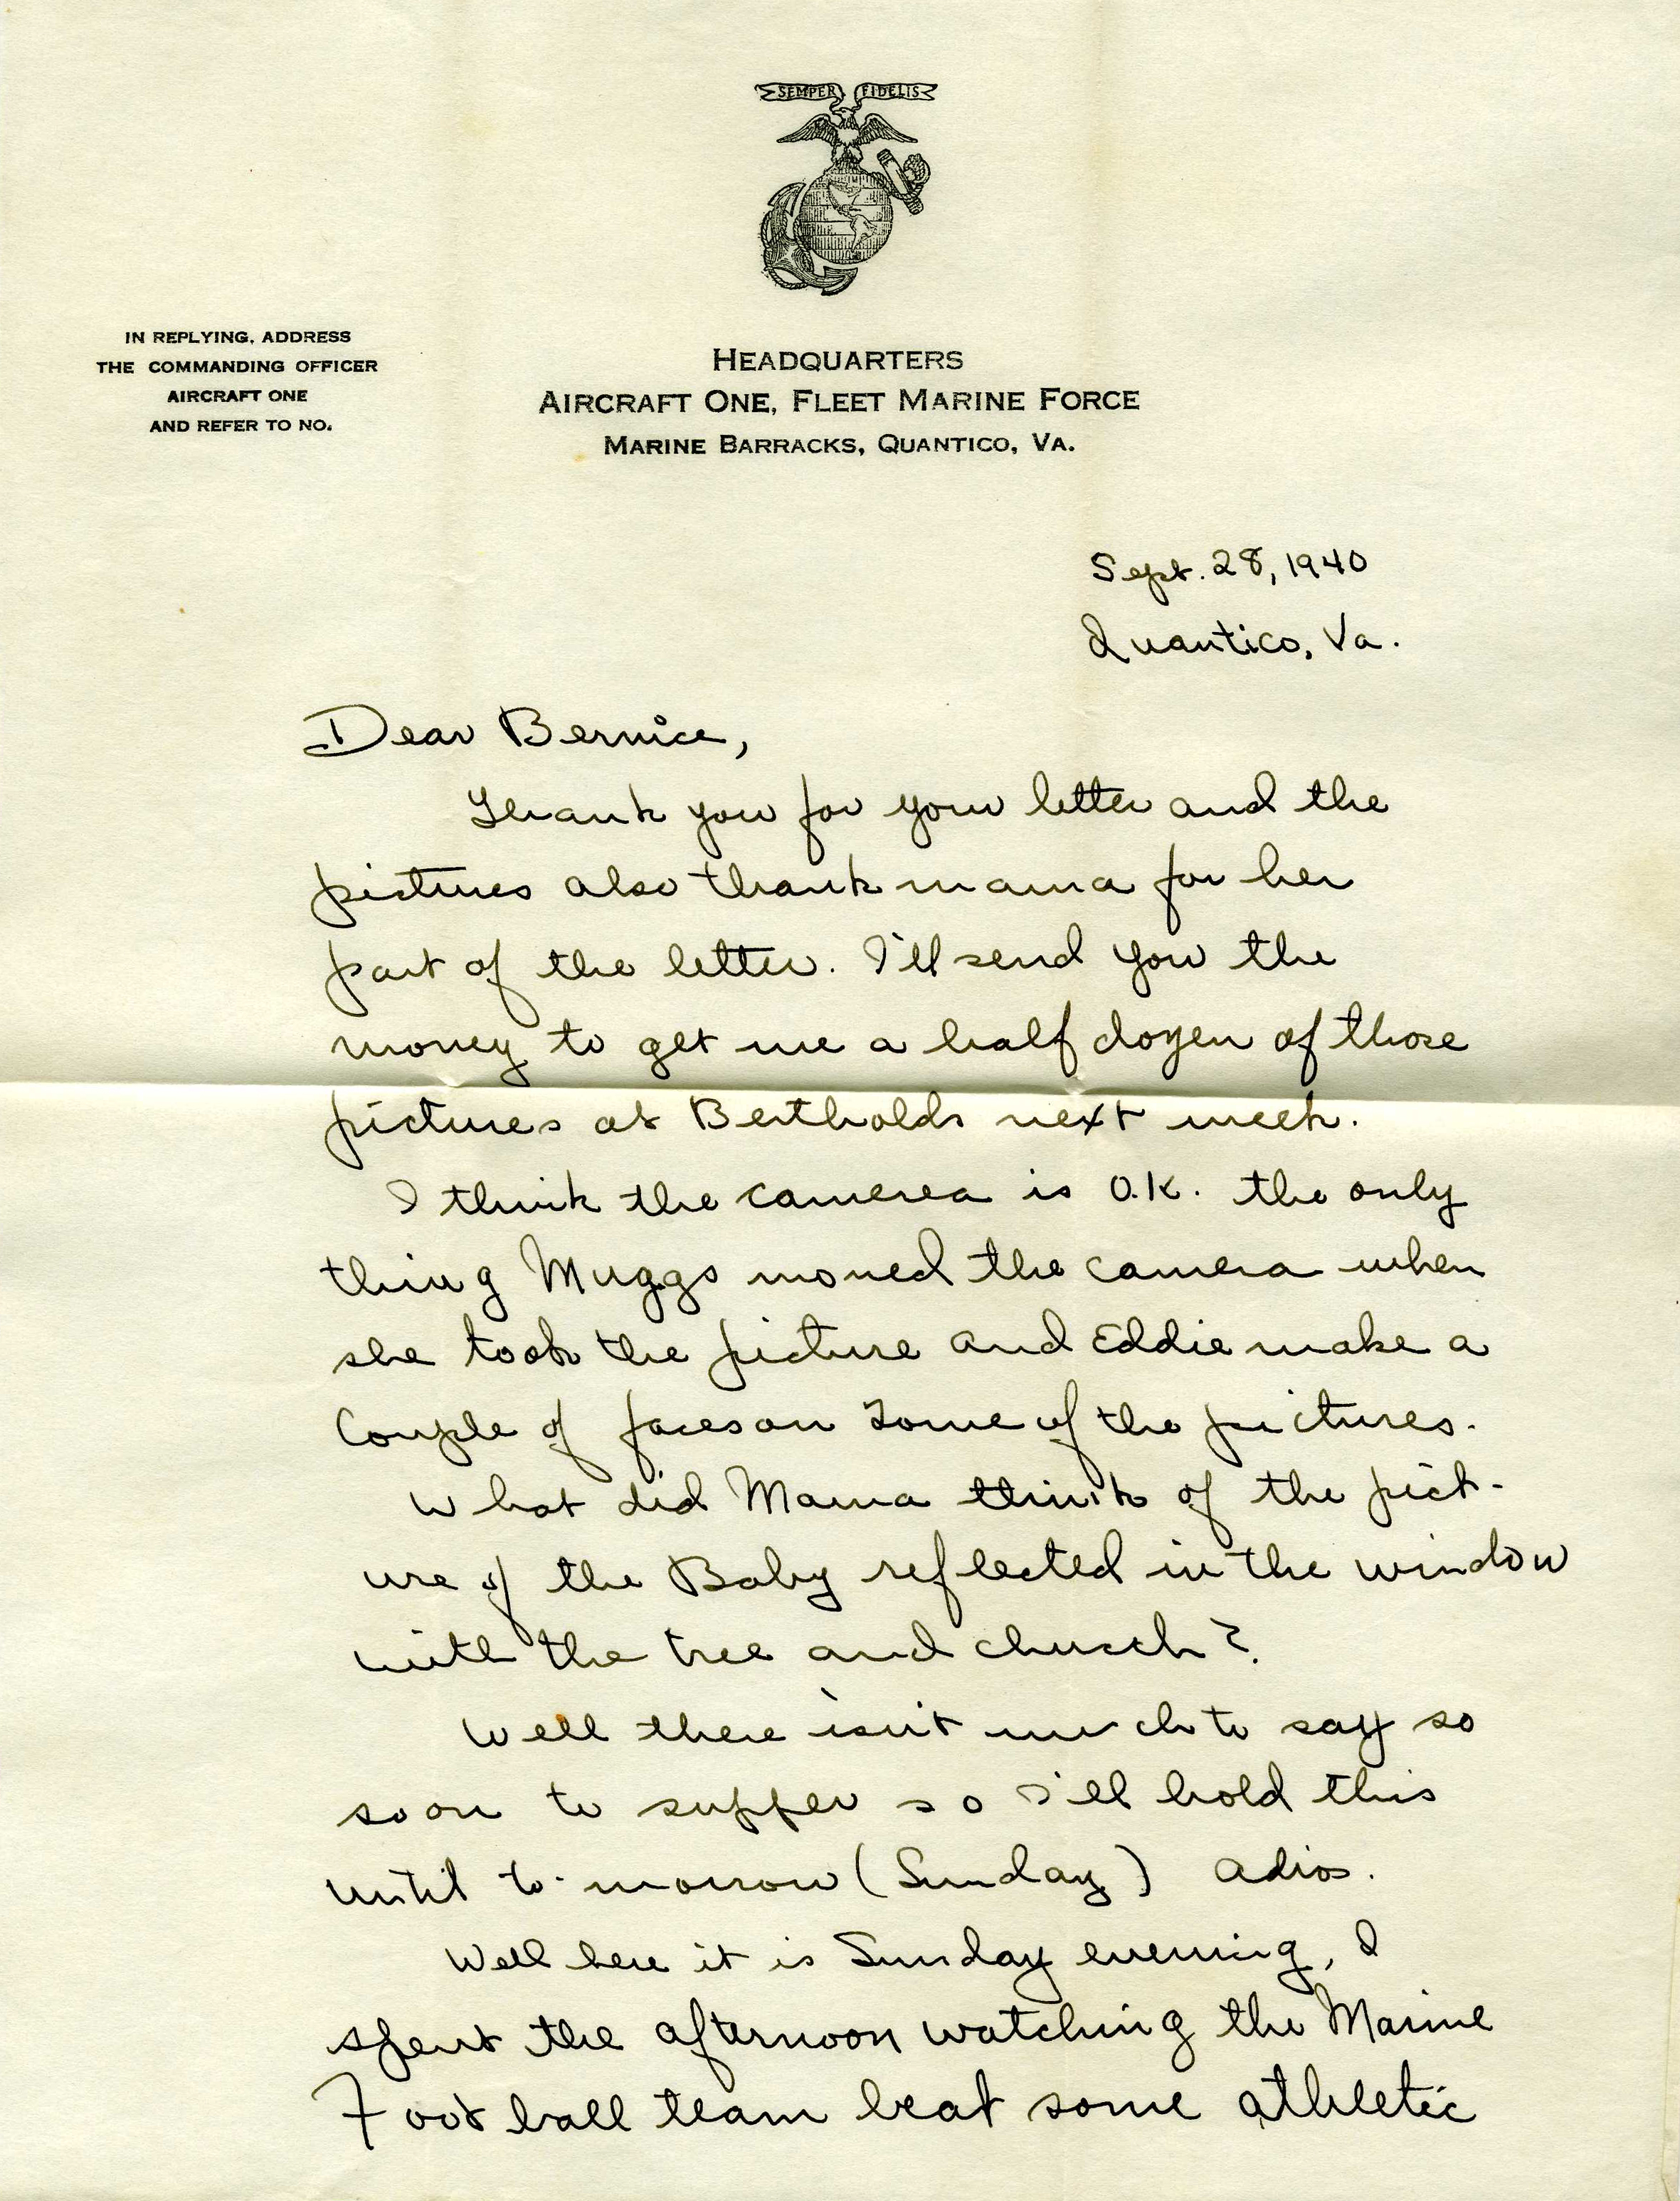 SEMPER FIDELIS
IN REPLYING, ADDRESS
THE COMMANDING OFFICER
AIRCRAFT ONE
AND REFER TO NO.
HEADQUARTERS
AIRCRAFT ONE, FLEET MARINE FORCE
MARINE BARRACKS, QUANTICO, VA.
Sept. 28, 1940
Quantico, Va.
Dear Bernice,
Thank you for your letter and the
pictures also thank mama for her
part of the letter. I'll send you the
money to get me a half dozen of those
pictures at Bertholds next week.
I think the camerea is O.K. the only
thing Muggs moved the camera when
she took the picture and Eddie make a
couple of faces on some of the pictures.
What did Mama think of the pict-
ure of the Baby reflected in the window
with the tree and church?
Well there isn't much to say so
soon to supper so I'll hold this
until to-morrow (Sunday) adios.
Well here it is Sunday evening, I
spent the afternoon watching the Marine
Foot ball team beat some athletic